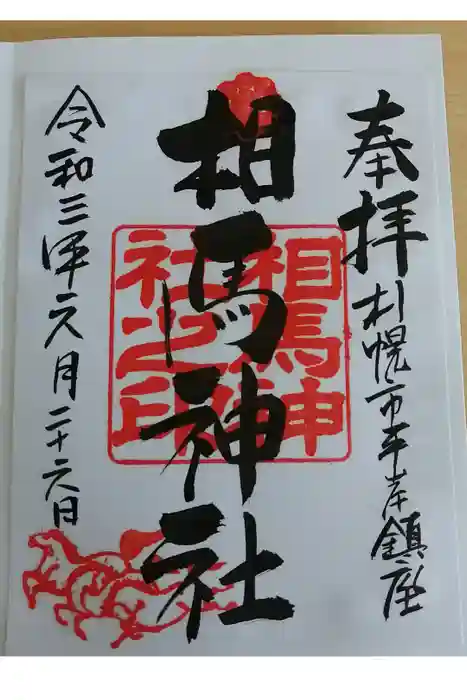 奉拝
札幌市平岸鎮座
相馬神社
相馬神社之印
令和三年元月二十六日